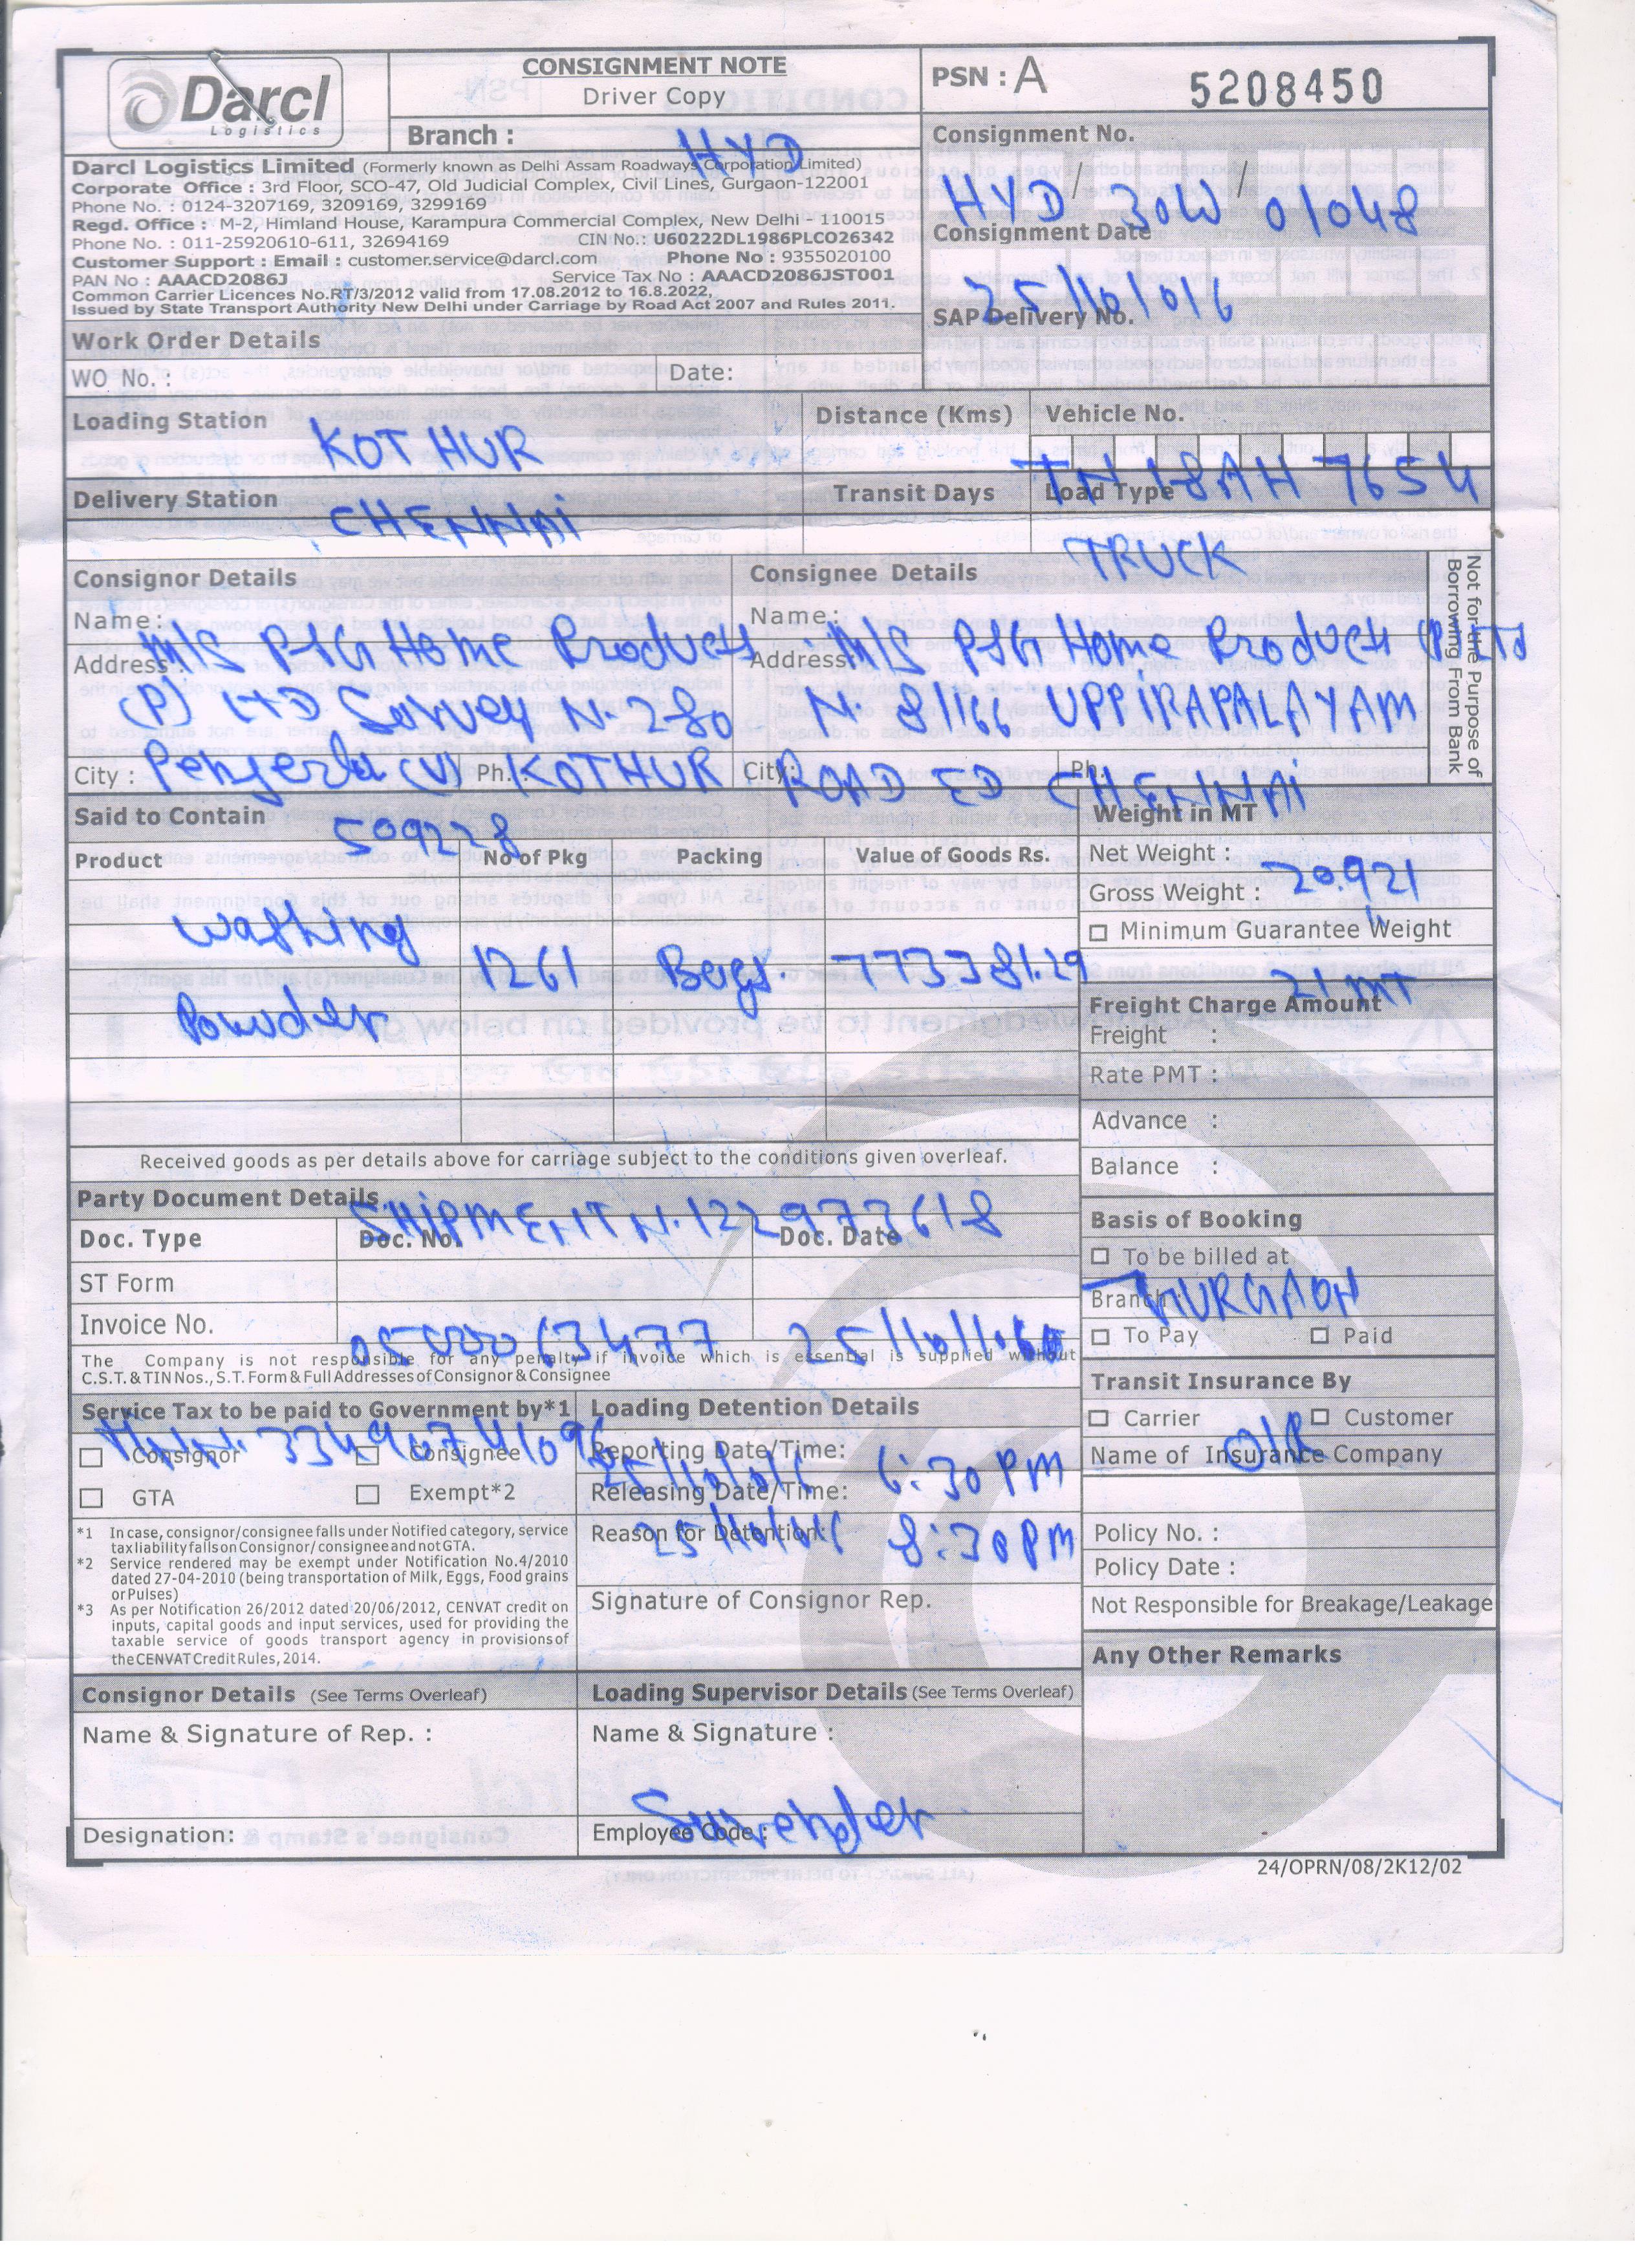 Darcl
Logistics
CONSIGNMENT NOTE
Driver Copy
Branch : HYD
PSN : A 5208450
Darcl Logistics Limited (Formerly known as Delhi Assam Roadways Corporation Limited)
Corporate Office : 3rd Floor, SCO-47, Old Judicial Complex, Civil Lines, Gurgaon-122001
Phone No. : 0124-3207169, 3209169, 3299169
Regd. Office : M-2, Himland House, Karampura Commercial Complex, New Delhi - 110015
Phone No. : 011-25920610-611, 32694169 CIN No.: U60222DL1986PLCO26342
Customer Support : Email : customer.service@darcl.com Phone No : 9355020100
PAN No : AAACD2086J Service Tax No : AAACD2086JST001
Common Carrier Licences No.RT/3/2012 valid from 17.08.2012 to 16.8.2022,
Issued by State Transport Authority New Delhi under Carriage by Road Act 2007 and Rules 2011.
Consignment No.
HYD / 30W / 01048
Consignment Date
SAP Delivery No.
Work Order Details
WO No. : Date:
Loading Station Distance (Kms) Vehicle No.
KOTHUR TN 18AH 7654
Delivery Station Transit Days Load Type
CHENNAI TRUCK
Consignor Details
Name: M/S P&G Home Products
Address: (P) LTD Survey N. 280
City : Penjerla (V) Ph.: KOTHUR
Consignee Details
Name: M/S P&G Home Products (P) LTD
Address: N. 81166 UPPIRAPALAYAM
City: ROAD ED CHENNAI Ph.
Not for the Purpose of
Borrowing From Bank
Said to Contain 509228
Product No of Pkg Packing Value of Goods Rs.
Washing
Powder 1261 Bags. 773381.29
Weight in MT
Net Weight : 20.921
Gross Weight :
Minimum Guarantee Weight
21 MT
Freight Charge Amount
Freight :
Rate PMT :
Advance :
Balance :
Received goods as per details above for carriage subject to the conditions given overleaf.
Party Document Details SHIPMENT N. 122973618
Doc. Type Doc. No. Doc. Date
ST Form
Invoice No.
The Company is not responsible for any penalty if invoice which is essential is supplied without
C.S.T. & TIN Nos., S.T. Form & Full Addresses of Consignor & Consignee
Basis of Booking
To be billed at
Branch : GURGAON
To Pay Paid
Transit Insurance By
Carrier Customer
O/R
Name of Insurance Company
Policy No. :
Policy Date :
Not Responsible for Breakage/Leakage
Any Other Remarks
Service Tax to be paid to Government by*1
Consignor Consignee
GTA Exempt*2
*1 In case, consignor/consignee falls under Notified category, service
tax liability falls on Consignor/ consignee and not GTA.
*2 Service rendered may be exempt under Notification No.4/2010
dated 27-04-2010 (being transportation of Milk, Eggs, Food grains
or Pulses)
*3 As per Notification 26/2012 dated 20/06/2012, CENVAT credit on
inputs, capital goods and input services, used for providing the
taxable service of goods transport agency in provisions of
the CENVAT Credit Rules, 2014.
Loading Detention Details
Reporting Date/Time: 6:30 PM
Releasing Date/Time: 8:30 PM
Reason for Detention:
Signature of Consignor Rep.
Consignor Details (See Terms Overleaf)
Name & Signature of Rep. :
Designation:
Loading Supervisor Details (See Terms Overleaf)
Name & Signature :
Surender
Employee Code :
24/OPRN/08/2K12/02